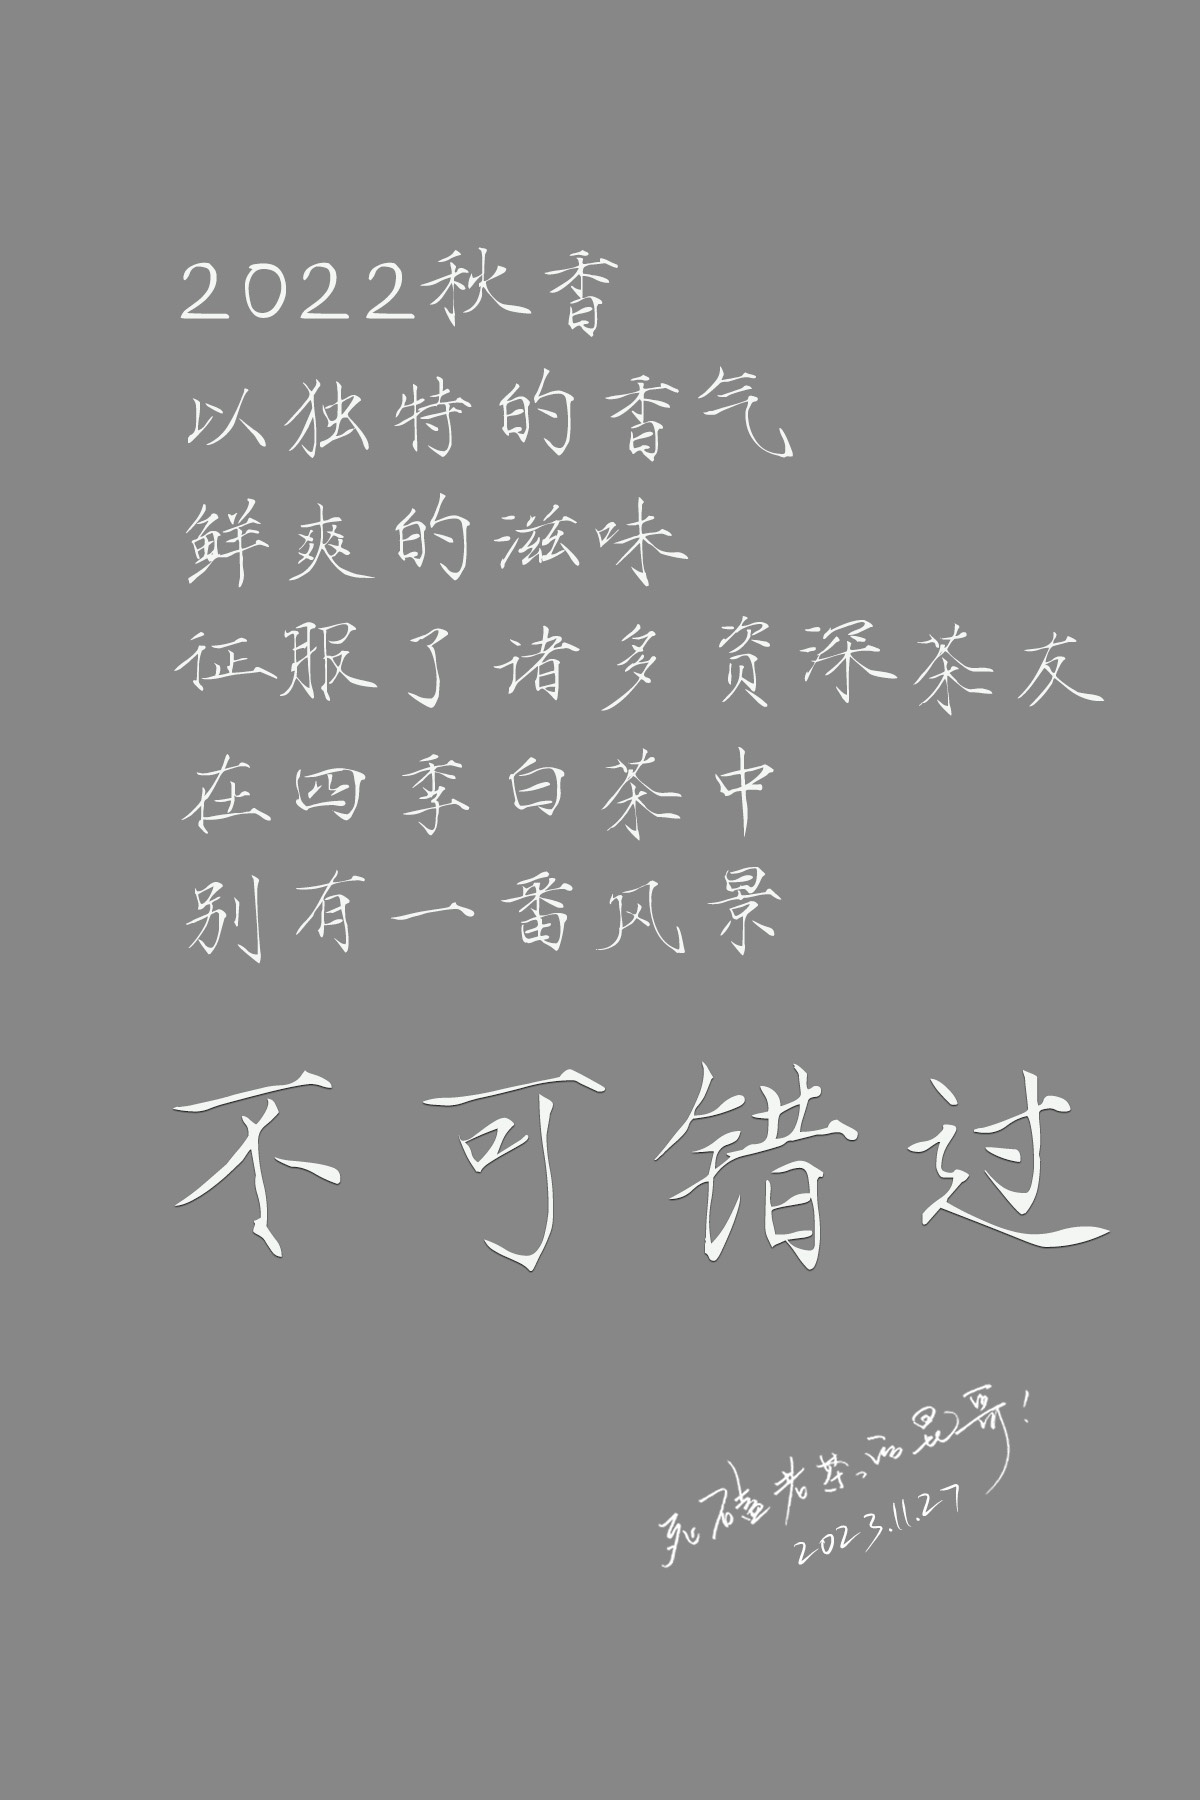 2022秋香
以独特的香气
鲜爽的滋味
征服了诸多资深茶友
在四季白茶中
别有一番风景
不可错过
死磕老茶的昆哥！
2023.11.27